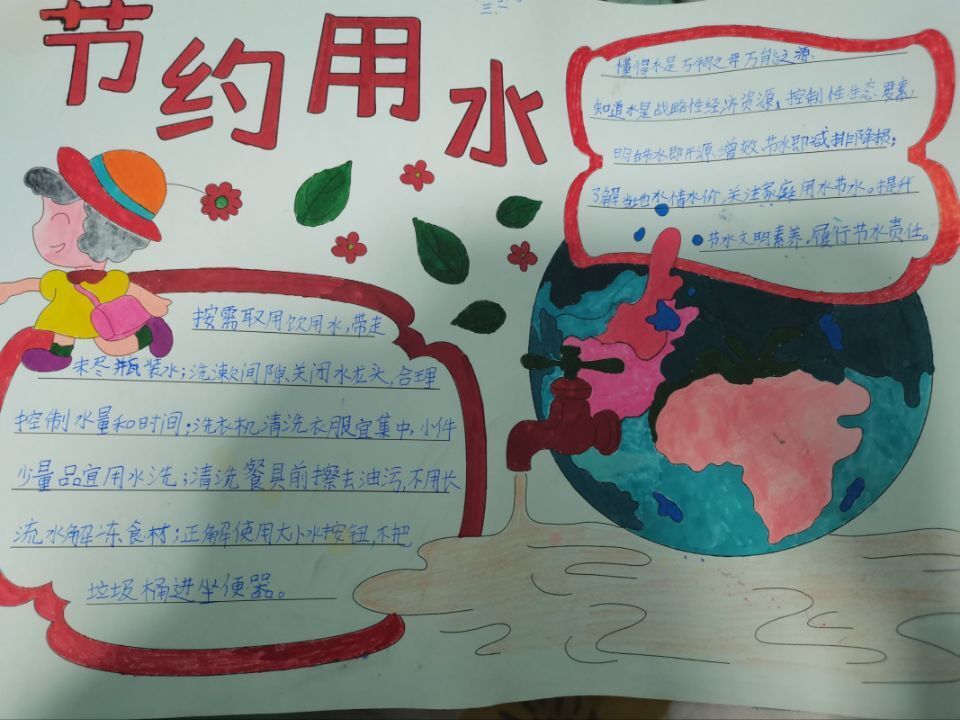 节约用水
懂得水是万物之母万能之源
知道水是战略性经济资源、控制性生态要素,
明白节水即开源增效、节水即减排降损;
了解当地水情水价,关注家庭用水节水。提升
节水文明素养,履行节水责任。
按需取用饮用水,带走
未尽瓶装水;洗漱间隙关闭水龙头,合理
控制水量和时间;洗衣机清洗衣服宜集中,小件
少量品宜用水洗;清洗餐具前擦去油污,不用长
流水解冻食材;正解使用大小水按钮,不把
垃圾桶进坐便器。